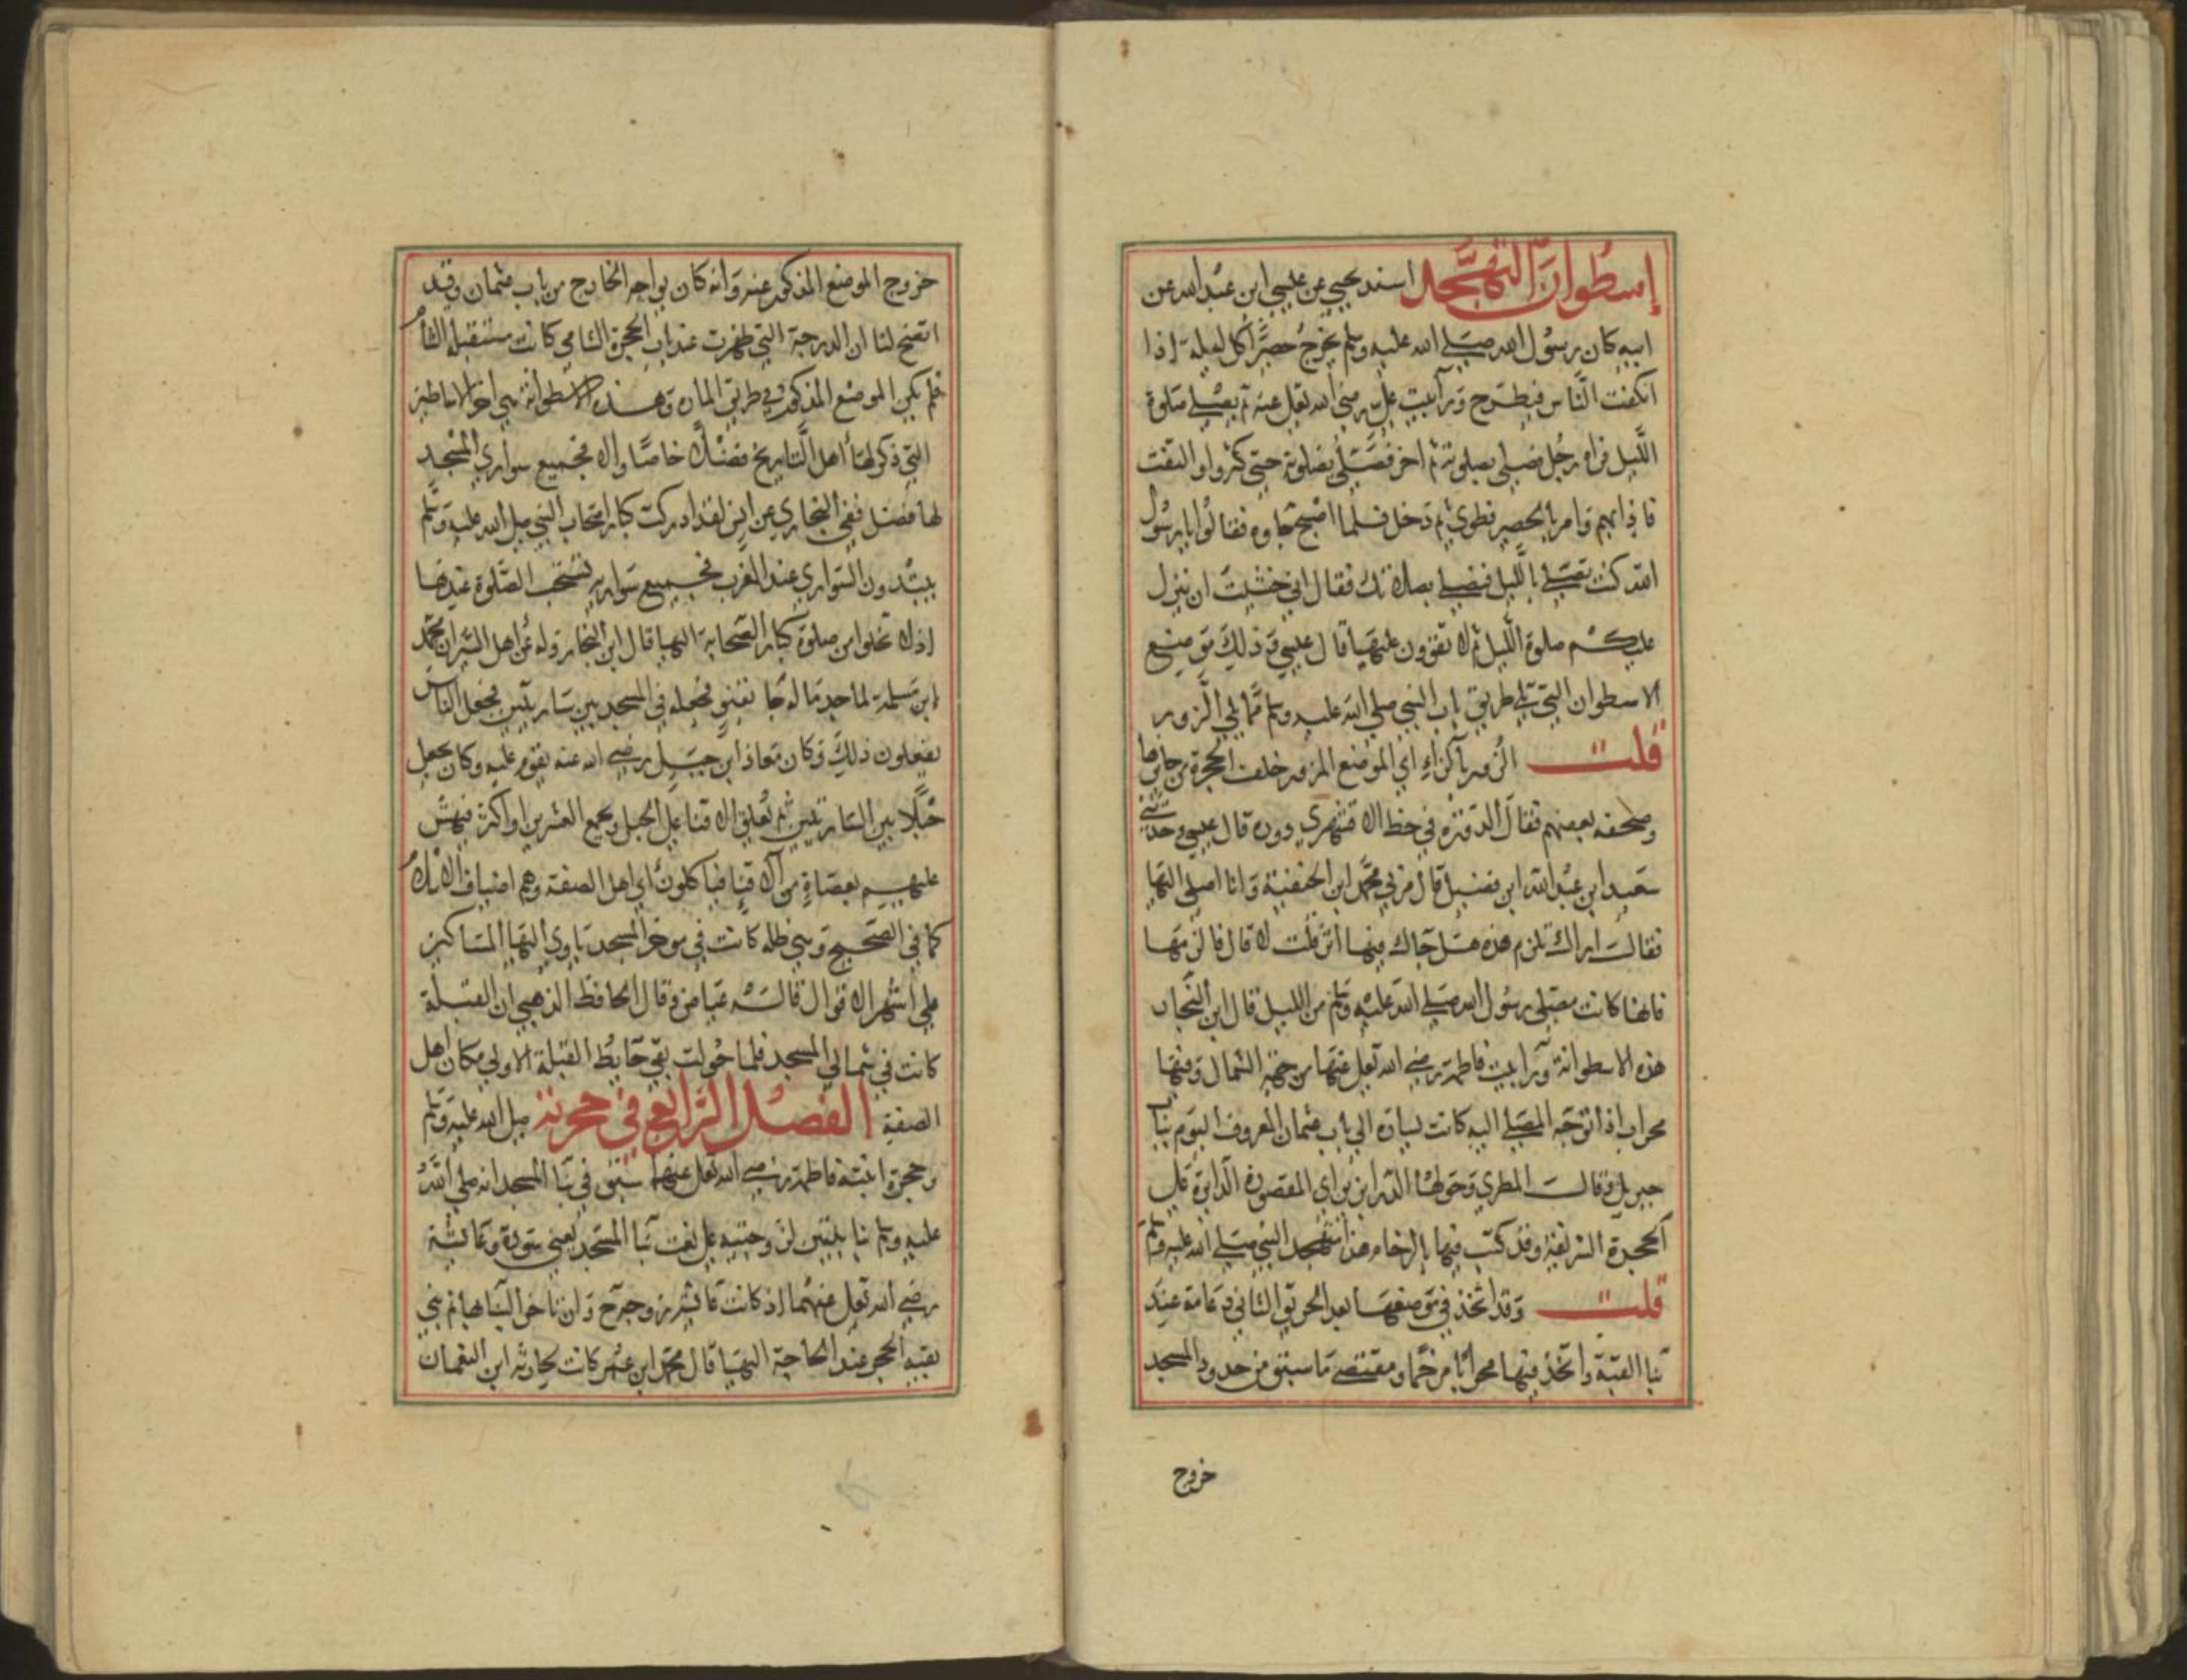 إسطوان التهجد اسند يحيى عن عيسى ابن عبد الله عن
ابيه كان رسول الله صلى الله عليه وسلم يخرج حصيرا كل ليلة اذا
انكفت الناس فيطرح ورآ بيت علي رضي الله تعلى عنه ثم يصلي صلوة
الليل فراه رجل فصلى بصلوته ثم اخر فصلى بصلوته حتى كثروا والتفت
فاذا بهم فامر بالحصير فطوى ثم دخل فلما اصبح جاوه فقالوا يا رسول
الله كنت تصلي بالليل فنصلي بصلاتك فقال اني خشيت ان ينزل
عليكم صلوة الليل ثم لا تقوون عليها قال عيسى وذلك موضع
الاسطوان التي تلي طريق باب النبي صلى الله عليه وسلم مما يلي الزور
قلت الزور بالزاء اي الموضع المزور خلف الحجرة من جانبها
وصحفه بعضهم فقال الدورة في خط الاقشهري دور قال عيسى وحدثني
سعيد ابن عبد الله ابن فضيل قال مر بي محمد ابن الحنفية وانا اصلي اليها
فقال اراك تلزم هذه هل جاك فيها اثر قلت لا قال فالزمها
فانها كانت مصلى رسول الله صلى الله عليه وسلم من الليل قال ابن النجار
هذه الاسطوانة ورآ بيت فاطمة رضي الله تعلى عنها من جهة الشمال وفيها
محراب اذا توجه المصلي اليه كانت يساره الى باب عثمان المعروف اليوم بباب
جبريل وقال المطري وحولها الدرابزين اي المقصورة الدايرة على
الحجرة الشريفة وقد كتب فيها بالرخام هذا متهجد النبي صلى الله عليه وسلم
قلت وقد اتخذ في موضعها بعد الحريق الثاني دعامة عند
بنا القبة واتخذ فيها محرابا مرخما ومقتضى ما سبق من حدود المسجد
خروج
خروج الموضع المذكور عنه وانه كان يواجه الخارج من باب عثمان وقد
اتضح لنا ان الدرجة التي ظهرت عند باب الحجرة الشامي كانت مستقبلة الشام
فلم يكن الموضع المذكور في طريق المار وهذه الاسطوانة هي اخر الاساطين
التي ذكر لها اهل التاريخ فضلا خاصا والا فجميع سواري المسجد
لها فضل ففي البخاري عن انس لقد ادركت كبار اصحاب النبي صلى الله عليه وسلم
يبتدرون السواري عند المغرب فجميع سواريه تستحب الصلوة عندها
اذ لا تخلوا من صلوة كبار الصحابة اليها قال ابن النجار وله عن اهل السير ان محمد
ابن مسلمة لما جد ماله جا بقنو فجعله في المسجد بين ساريتين فجعل الناس
يفعلون ذلك وكان معاذ ابن جبل رضي الله عنه يقوم عليه وكان يجعل
حبلا بين الساريتين ثم يعلق الاقنا على الحبل ويجمع العشرين او اكثر فيهش
عليهم بعصاة من الاقنا فيأكلون اي اهل الصفة وهم اضياف الاسلام
كما في الصحيح وهي ظلة كانت في موخر المسجد ياوي اليها المساكين
على اشهر الاقوال قاله عياض وقال الحافظ الذهبي ان القبلة
كانت في شمالي المسجد فلما حولت بقي حايط القبلة الاولى مكان اهل
الصفة الفصل الرابع في حجرته صلى الله عليه وسلم
وحجرة ابنته فاطمة رضي الله تعلى عنها سبق في بنا المسجد انه صلى الله
عليه وسلم بنا بيتين لزوجتيه على نعت بنا المسجد يعني سودة وعائشة
رضي الله تعلى عنهما اذ كانت عائشة زوجة ح وان تاخر البنا بها ثم بنى
بقية الحجر عند الحاجة اليها قال محمد ابن عمر كانت لحارثة ابن النعمان